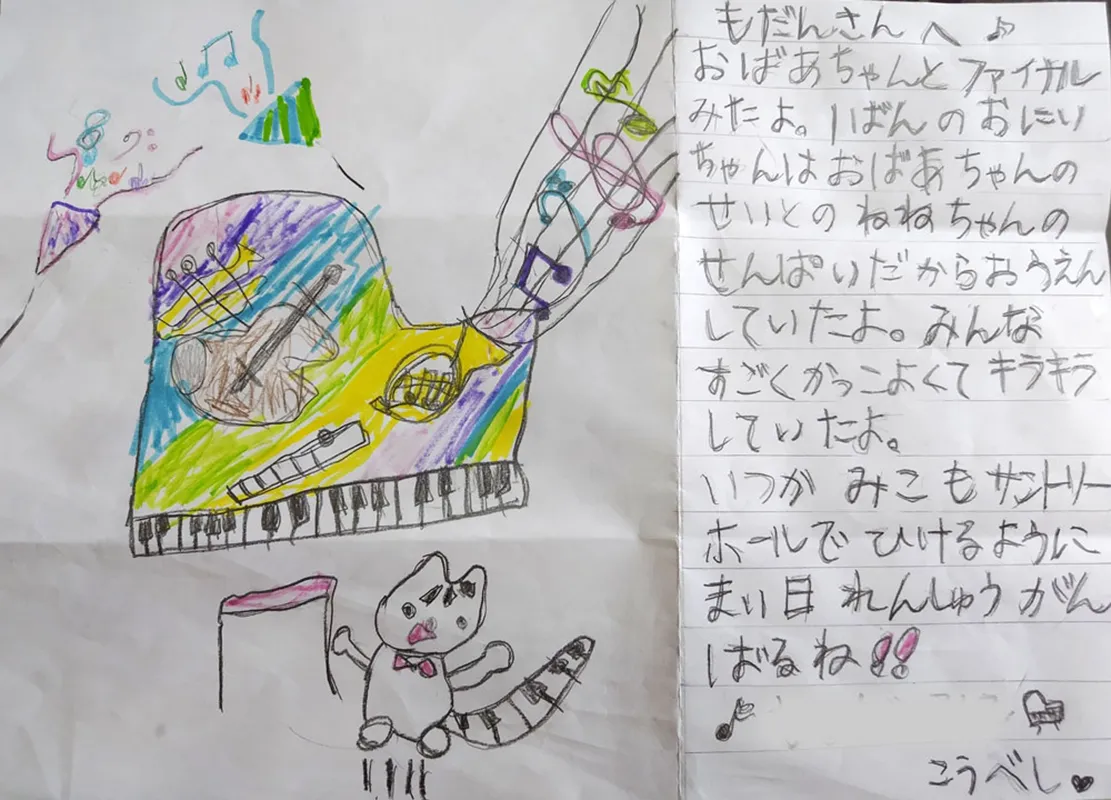 もだんさんへ♪
おばあちゃんとファイナル
みたよ。1ばんのおにい
ちゃんはおばあちゃんの
せいとのねねちゃんの
せんぱいだからおうえん
していたよ。みんな
すごくかっこよくてキラキラ
していたよ。
いつかみこもサントリー
ホールでひけるように
まい日れんしゅうがん
ばるね!!
こうべし